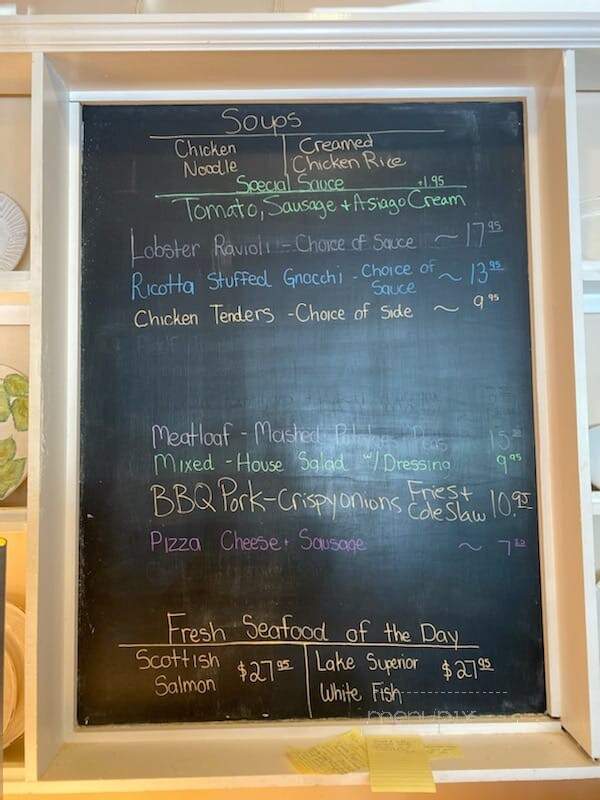 Soups
Chicken Noodle
Creamed Chicken Rice
Special Sauce +1.95
Tomato, Sausage + Asiago Cream
Lobster Ravioli - Choice of Sauce ~ 17.95
Ricotta Stuffed Gnocchi - Choice of Sauce ~ 13.95
Chicken Tenders - Choice of Side ~ 9.95
Meatloaf - Mashed Potatoes Peas
Mixed - House Salad w/ Dressing 9.95
BBQ Pork - Crispy onions Fries + Cole Slaw 10.95
Pizza Cheese + Sausage ~
Fresh Seafood of the Day
Scottish Salmon $27.95
Lake Superior White Fish $27.95
menupix